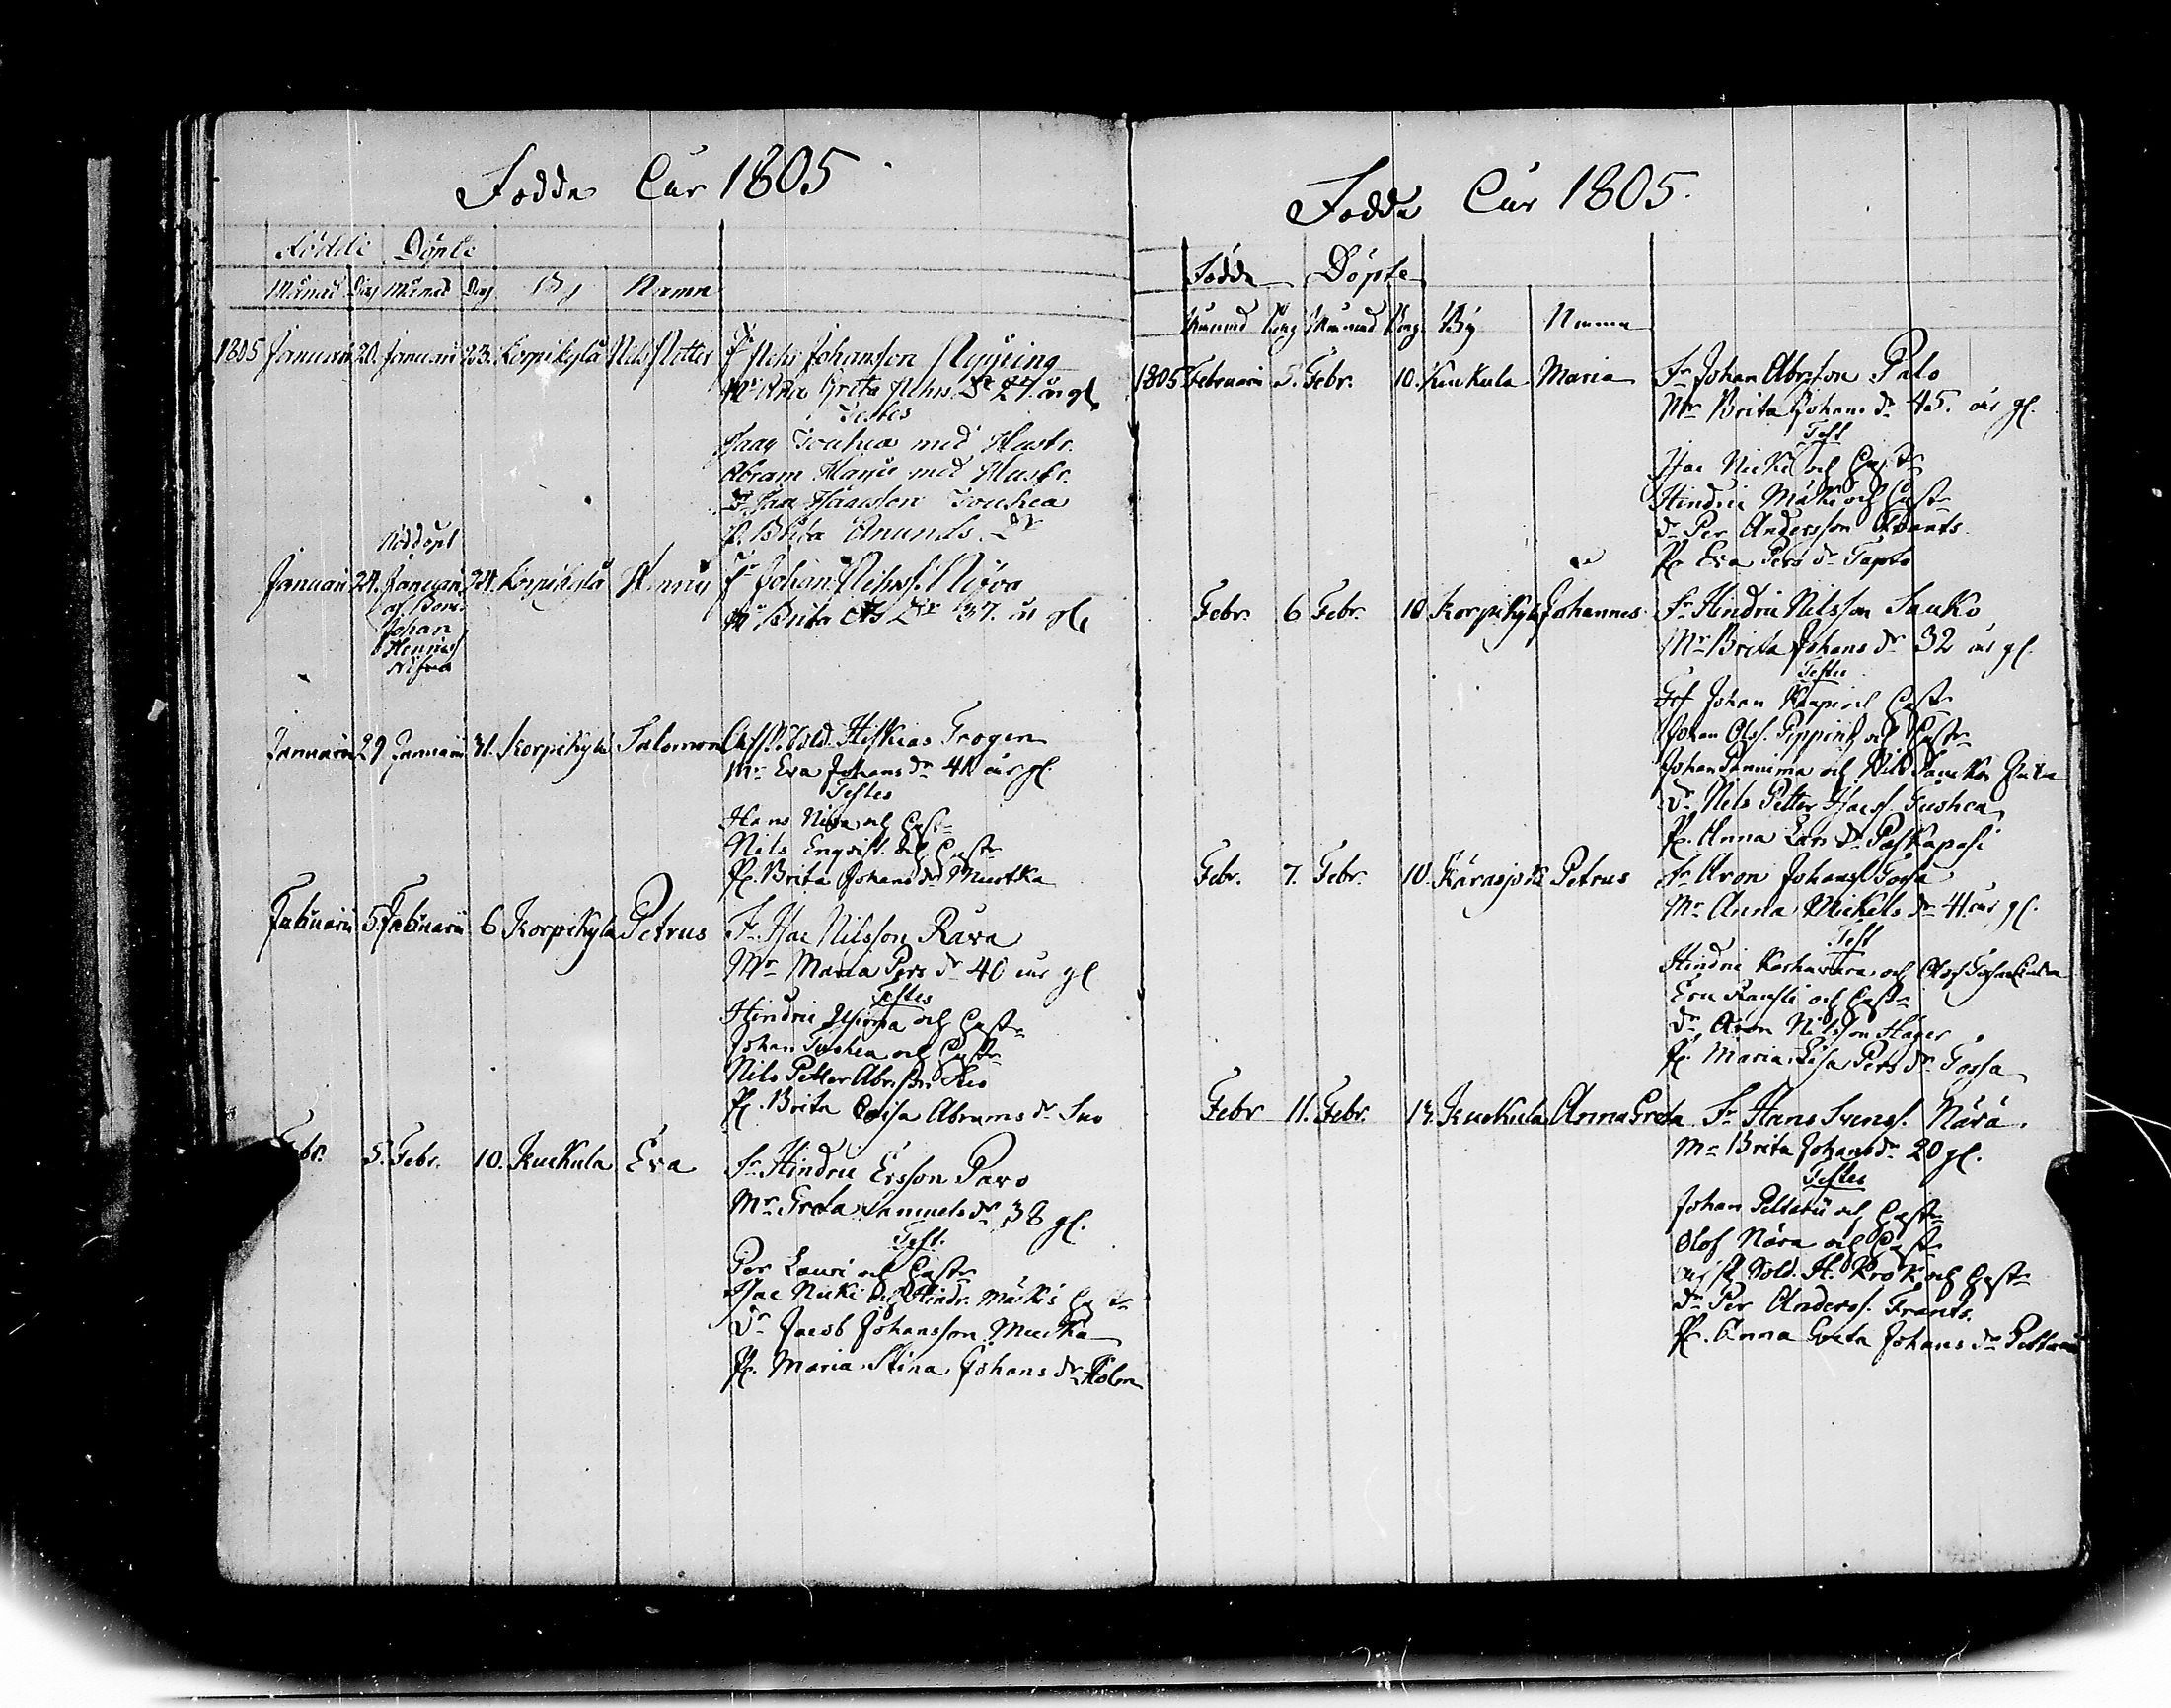 Födde Åår 1805
Födde Döpte
Månad Dag Månad Dag By Namn
1805 Januari 20. Januari 23. Korpikylä Nils Petter Fr Nils Johansson Nyyssing
Mr Ana Greta Nils Dr 27. år gl.
Testes
Isaac Touhea med Hustr.
Abram med Hustr.
Dr Isac Isaacson Touhea
P. Brita Anunds Dr
Nöddöpt
Januari 24. Januari 24. Korpikylä Henric Fr Johan Nilss. Niva
af Bar.
Johan
Niva
Mr Brita Dr 37. år gl.
Januari 29 Januari 31. Korpikylä Salomon Afsk. Sold. Hiskias Trogen
Mr Eva Johans dr 41 år gl.
Testes
Hans Niva och Hustr
Nils Enqvist och Hustr
P. Brita Johans dr Muotka
Februarii 5. Februarii 6 Korpikylä Petrus Fr Isac Nilsson Rava
Mr Maria Pers dr 40 år gl
Testes
Hindric och Hustr
Johan Touhea och Hustr
Nils Petter Abrss.
P. Brita Caisa Abrams dr Suo
Febr. 5. Febr. 10. Kuckula Eva Fr Hindric Ersson Pavo
Mr Greta Samuels dr 38 gl.
Test.
Per Lauri och Hustr
Isac Nicki och Hindr. Mäckis Hustr
Dr Jacob Johansson Muotka
P. Maria Stina Johans dr
Födde Åår 1805.
Födde Döpte
Månad Dag Månad Dag By Namn
1805 Februari 5. Febr. 10. Kuckula Maria Fr Johan Abrsson Palo
Mr Brita Johans dr 45. år gl.
Test
Isac Nicki och Hustr
Hindric Mäki och Hustr
Dr Per Andersson Frants
P. Eva Pers dr Tapto
Febr. 6 Febr. 10 Korpikylä Johannes Fr Hindric Nilsson Sauko
Mr Brita Johans dr 32 år gl.
Testes
Johan och Hustr
Johan Olss. Pipping och Hustr
Johan Pannima och Nils Saukos
Dr Nils Petter Isacs. Touhea
P. Anna Lars dr
Febr. 7. Febr. 10. Karasjoki Petrus Fr Aron Johanss. Gossa
Mr Anna Mickels dr 41. år gl.
Test
Hindric Koskavara och Olof
Eric och Hustr
Dr Aron Nilsson Häger
P. Maria Lisa Pers dr Gossa
Febr 11. Febr. 13. Kuckula Anna Greta Fr Hans Svenss. Närä.
Mr Brita Johans dr 20 gl.
Testes
Johan och Hustr
Olof Nära och Hustr
afsk. Sold. H. Krok och Hustr
Dr Per Anderss. Frants.
P. Anna Greta Johans dr